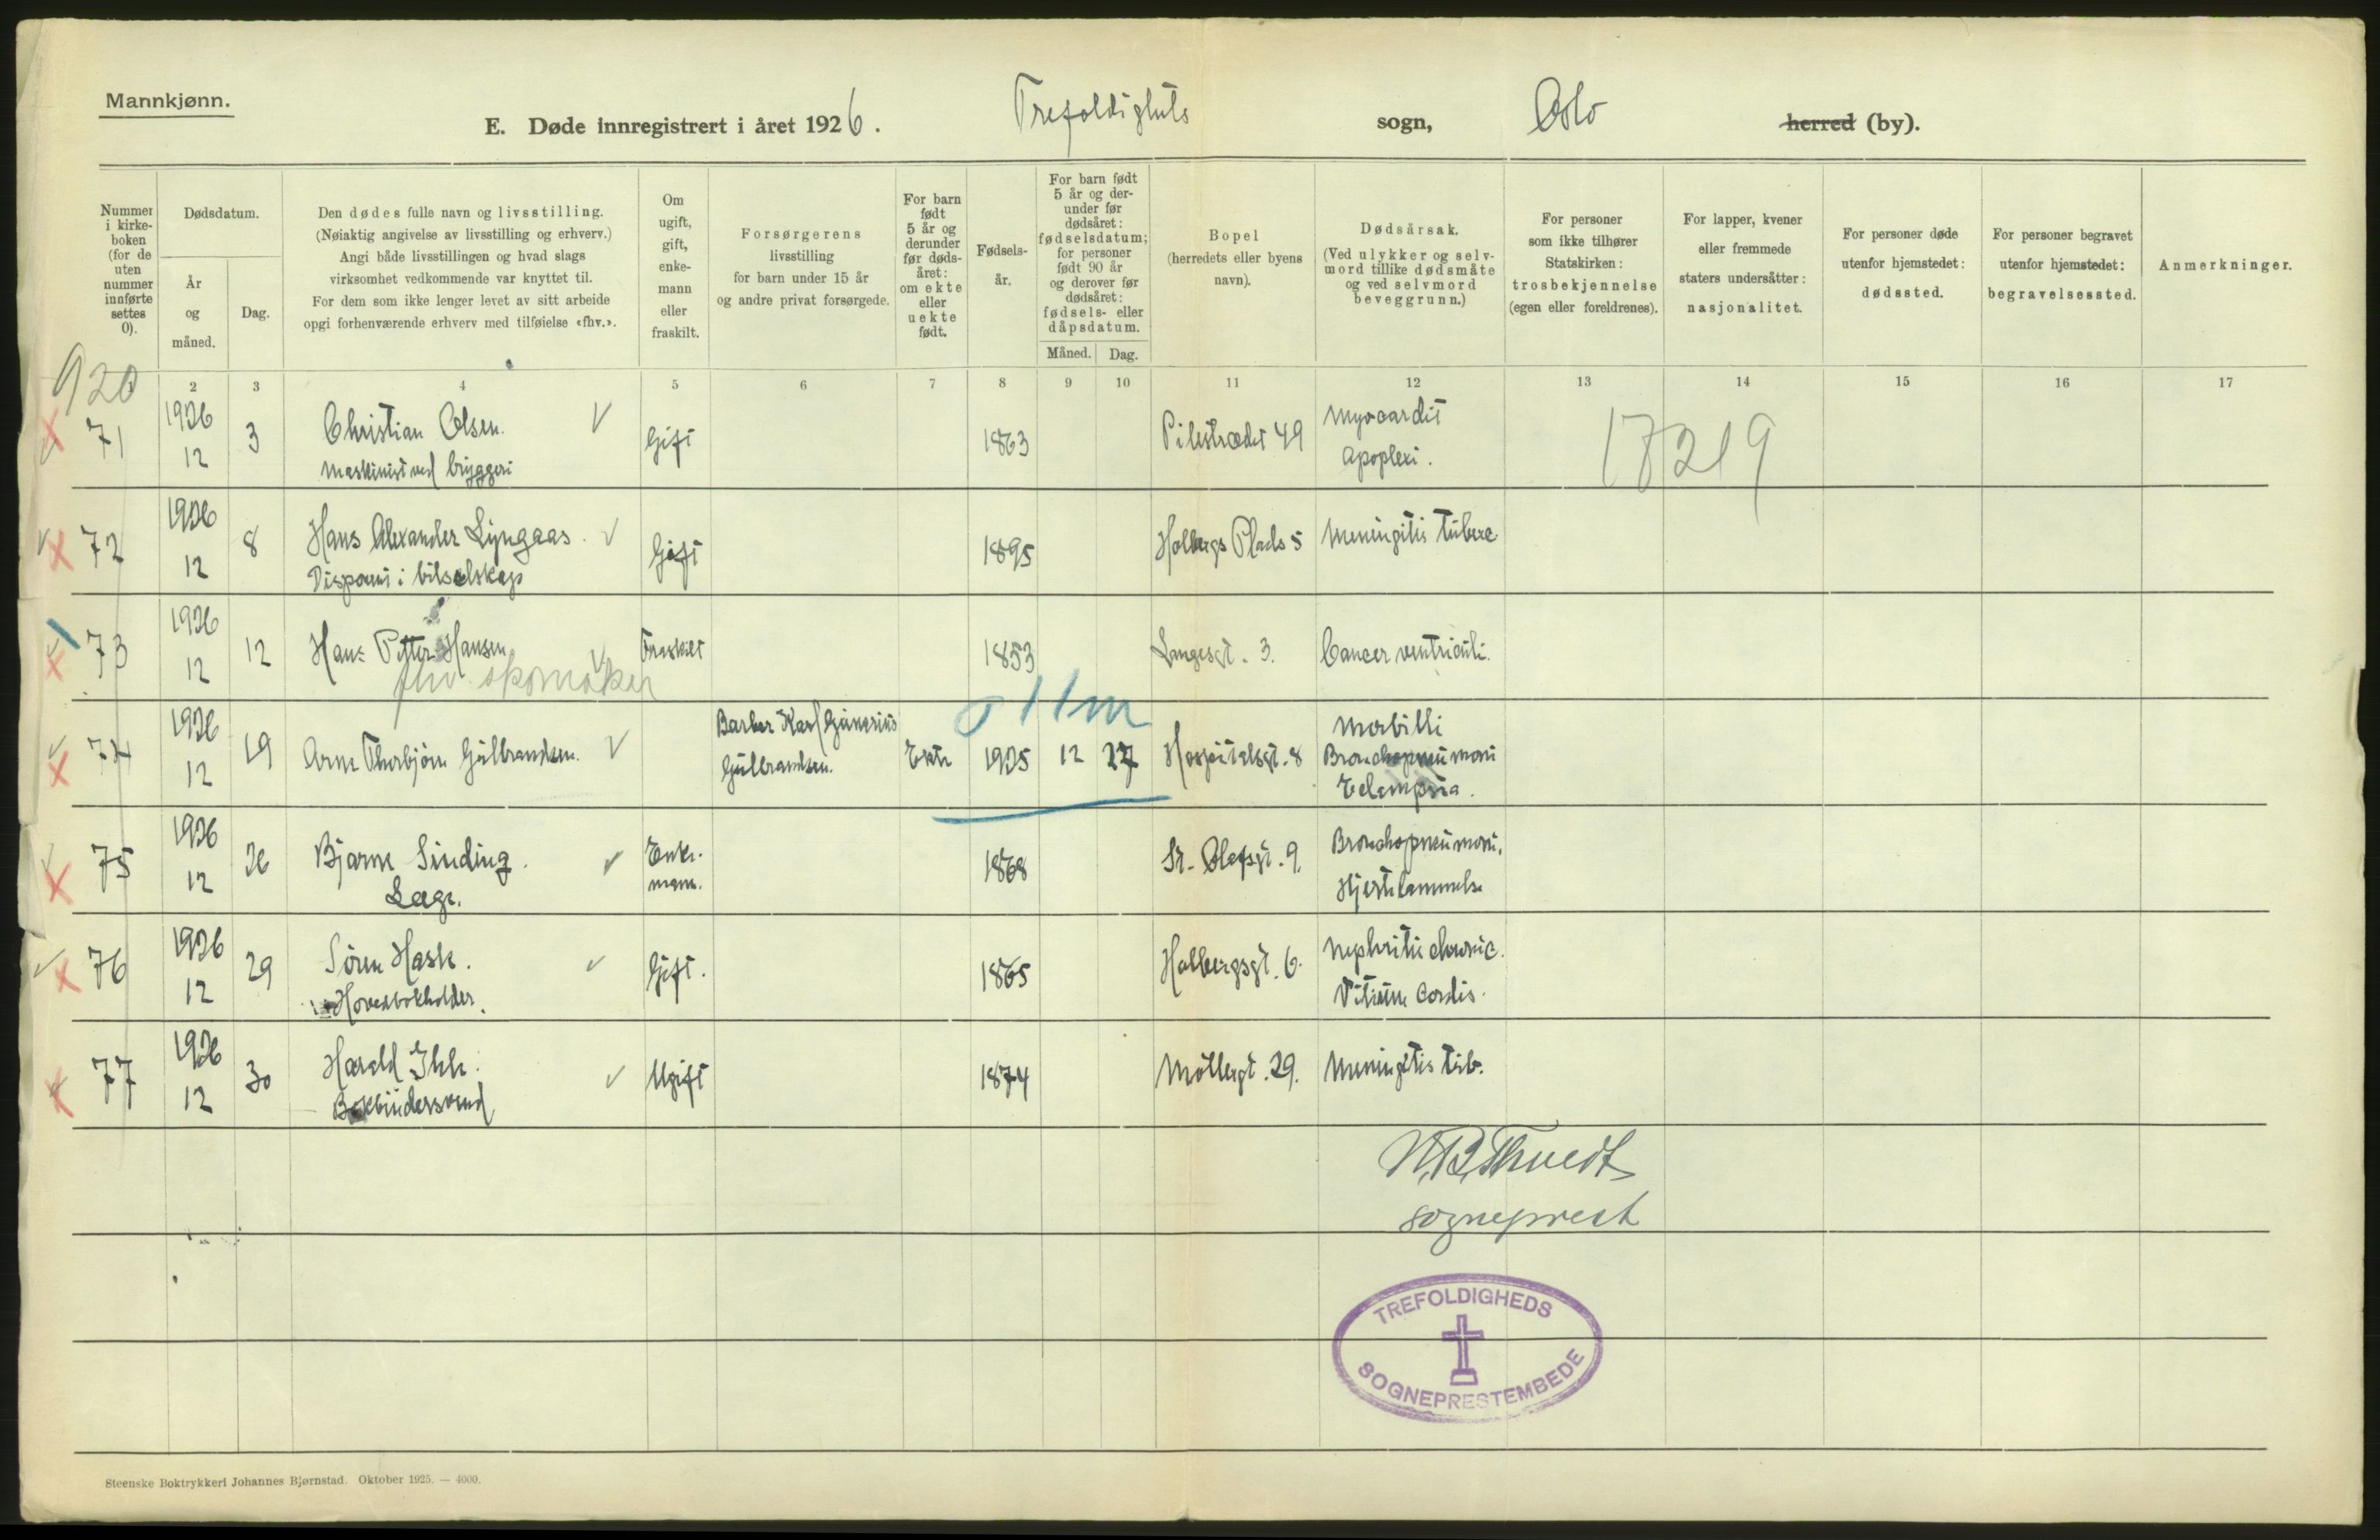 Mannkjønn.
E. Døde innregistrert i året 1926. Trefoldighets sogn, Oslo herred (by).
Nummer i kirkeboken (for de uten nummer innførte settes 0).
Dødsdatum.
År og måned.
Dag.
Den dødes fulle navn og livsstilling.
(Nøiaktig angivelse av livsstilling og erhverv.)
Angi både livsstillingen og hvad slags
virksomhet vedkommende var knyttet til.
For dem som ikke lenger levet av sitt arbeide
opgi forhenværende erhverv med tilføielse «fhv.».
Om ugift, gift, enkemann eller fraskilt.
Forsørgerens
livsstilling
for barn under 15 år
og andre privat forsørgede.
For barn født 5 år og derunder før dødsåret: om ekte eller uekte født.
Fødselsår.
For barn født 5 år og derunder før dødsåret: fødselsdatum; for personer født 90 år og derover før dødsåret: fødsels- eller dåpsdatum.
Måned. Dag.
Bopel
(herredets eller byens
navn).
Dødsårsak.
(Ved ulykker og selvmord tillike dødsmåte og ved selvmord beveggrunn.)
For personer
som ikke tilhører
Statskirken:
trosbekjennelse
(egen eller foreldrenes).
For lapper, kvener
eller fremmede
staters undersåtter:
nasjonalitet.
For personer døde
utenfor hjemstedet:
dødssted.
For personer begravet
utenfor hjemstedet:
begravelsessted.
Anmerkninger.
920
2 3 4 5 6 7 8 9 10 11 12 13 14 15 16 17
71 1926 12 3 Christian Olsen. Gift 1863 Pilestrædet 49 Myocardit
maskinist ved bryggeri apoplexi.
17219
72 1926 12 8 Hans Alexander Lyngaas. Gift 1895 Holbergs Plads 5 Meningitis tuberc.
Disponent i bilselskap
73 1926 12 12 Hans Petter Hansen Fraskilt 1853 Langesgt. 3. Cancer ventriculi.
fhv. skomaker
74 1926 12 19 Arne Thorbjørn Gulbrandsen. Barber Karl Gunerius Gulbrandsen. Ekte 1925 12 27 Hospitalsgt. 8 Morbilli
Bronchopneumoni
Eclampsia.
11m
75 1926 12 26 Bjarne Sinding. Enkemann. 1868 St. Olafsgt. 9. Bronchopneumoni.
Læge. Hjertelammelse
76 1926 12 29 Sören Hasle. Gift. 1865 Holbergsgt. 6. Nephritis chronic.
Hovedbokholder. Vitium cordis.
77 1926 12 30 Harald Ihle. Ugift 1874 Møllergt. 29. Meningitis tub.
Bokbindersvend
sogneprest
TREFOLDIGHEDS
SOGNEPRESTEMBEDE
Steenske Boktrykkeri Johannes Bjørnstad. Oktober 1925. — 4000.